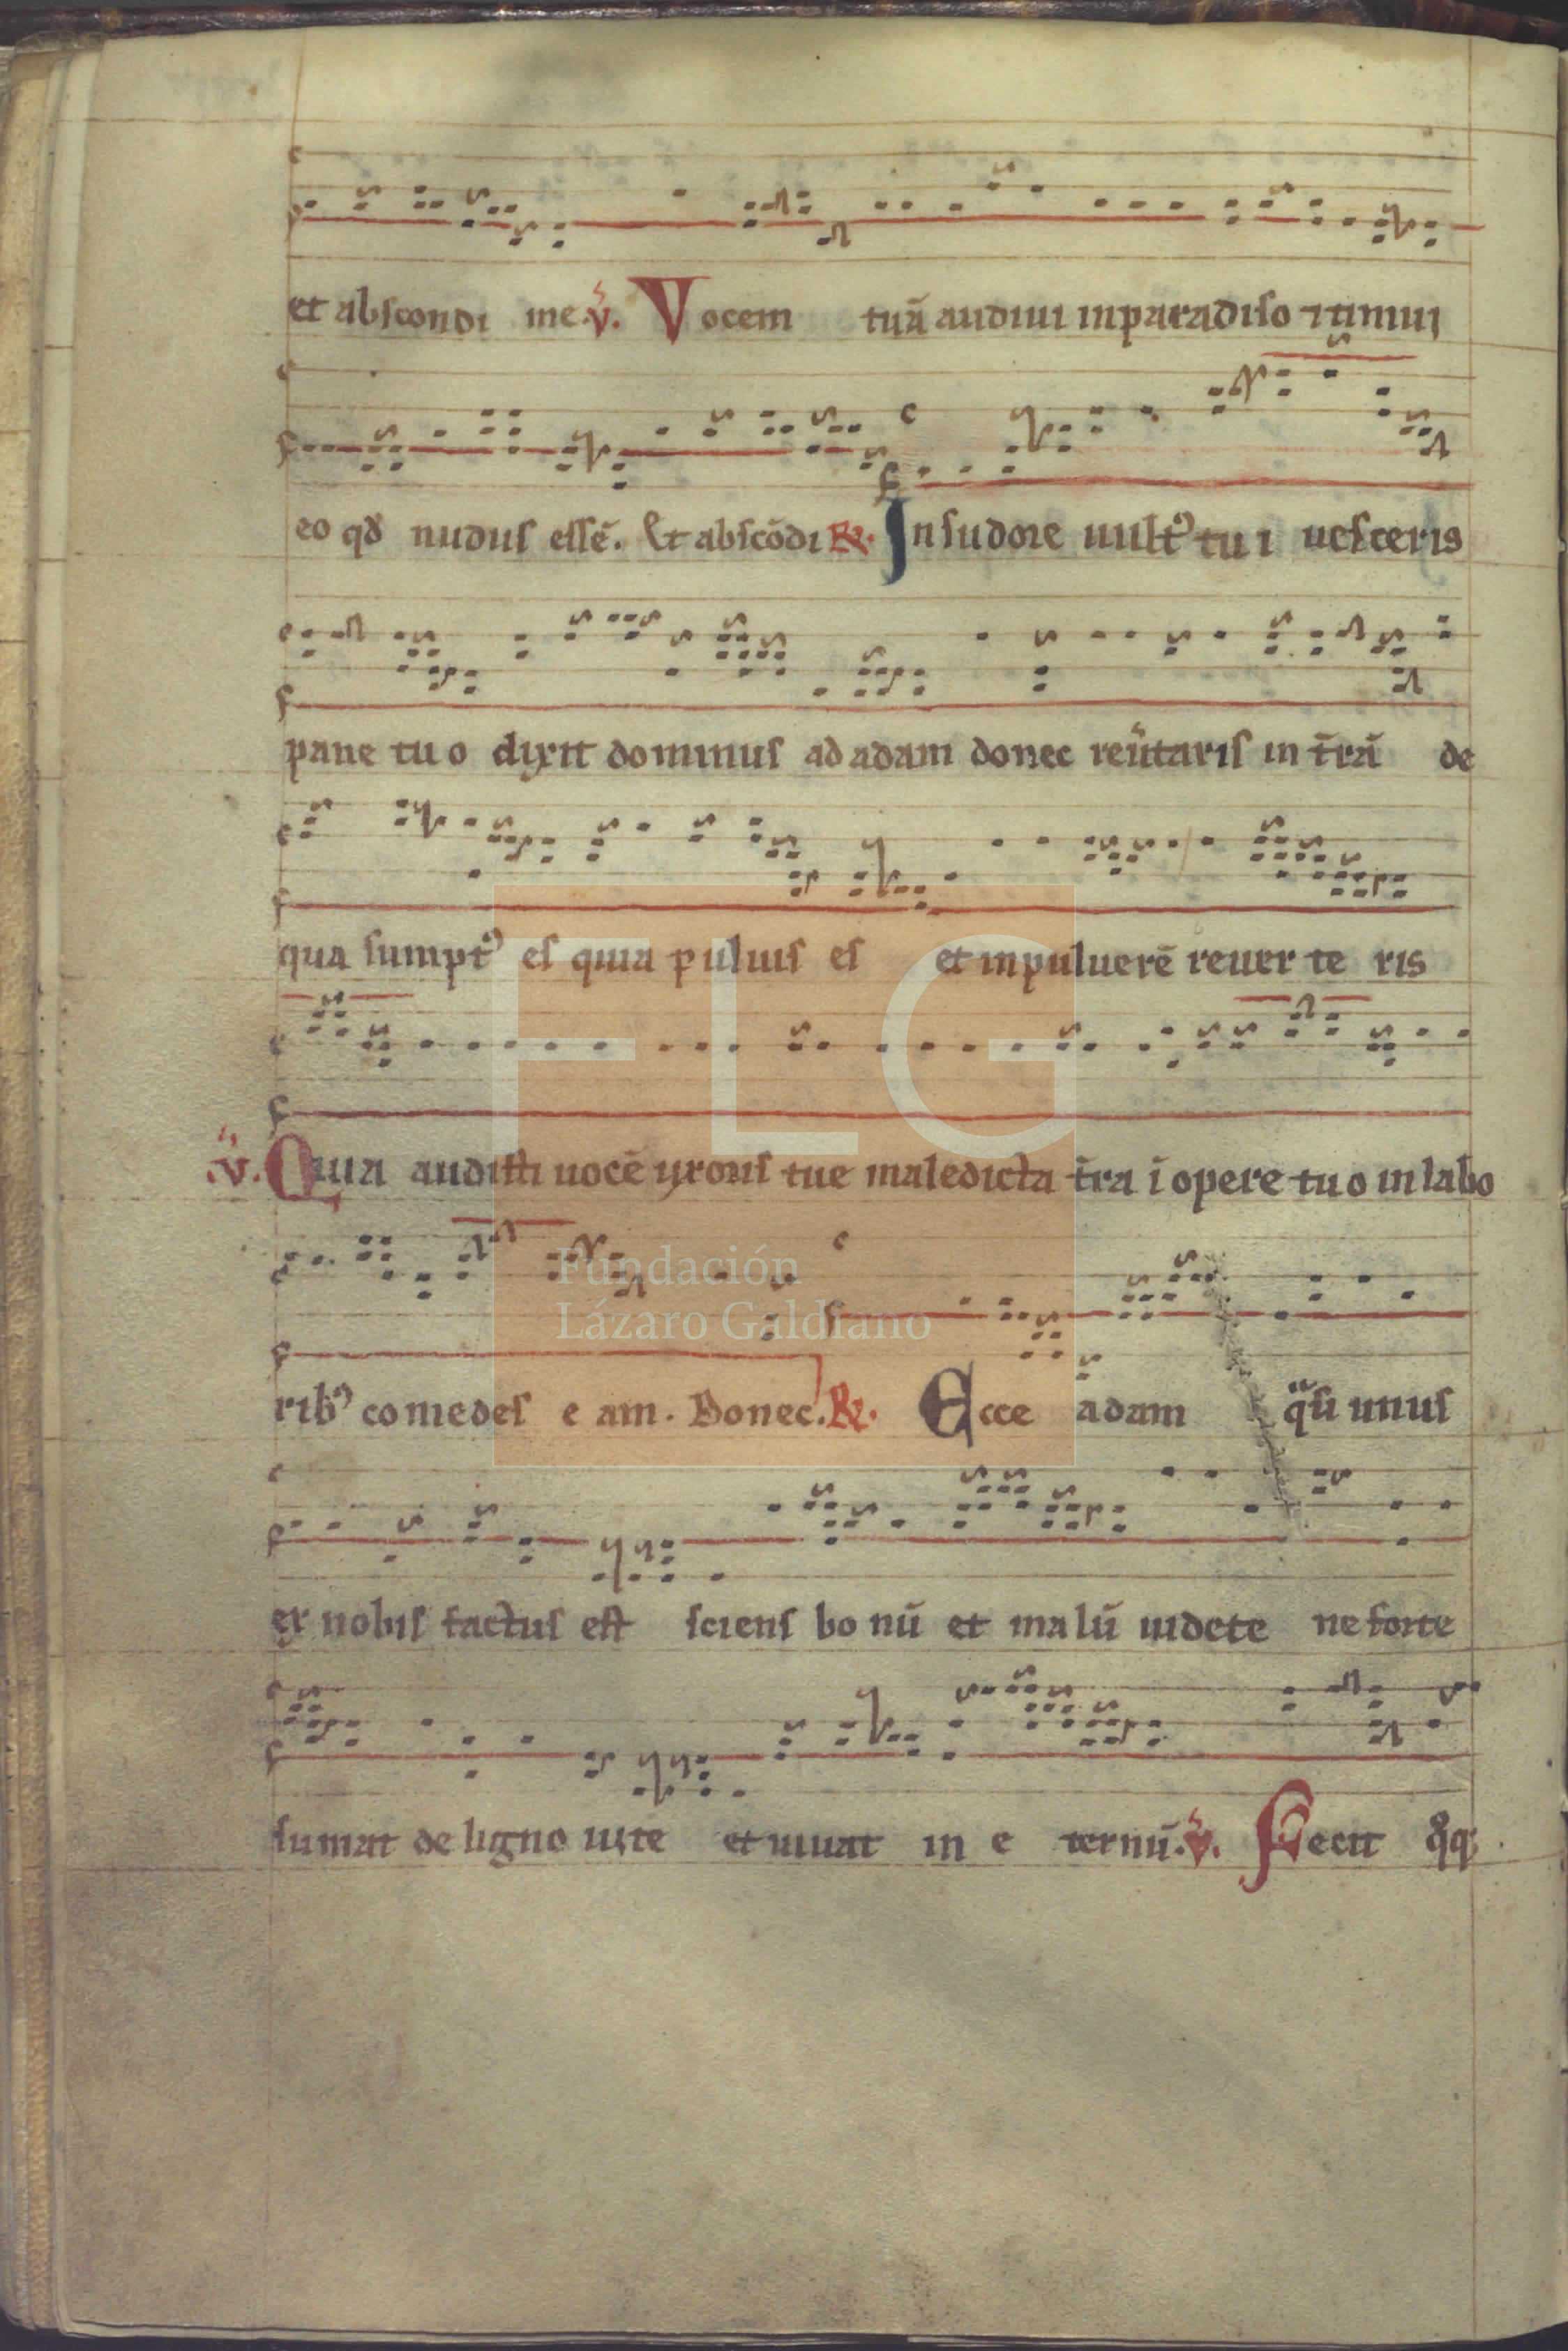 et abscondi me. ℣. Vocem tuā audiui inparadiso ⁊ timui
eo qđ nudus essē. Et abscōdi ℟. Insudore uult᾽ tu i uesceris
pane tu o dixit dominus ad adam donec reu̾taris in t̄rā de
qua sumpt᾽ es quia puluis es et inpuluerē reuer te ris
℣. Quia audisti uocē uxoris tue maledicta t̄ra ī opere tuo in labo
FLG
rib᾽ comedes e am. Donec. ℟. Ecce adam q̈si unus
Fundación
Lázaro Galdiano
ex nobis factus est sciens bo nū et ma lū uidete ne forte
sumat de ligno uite et uiuat in e ternū. ℣. Fecit